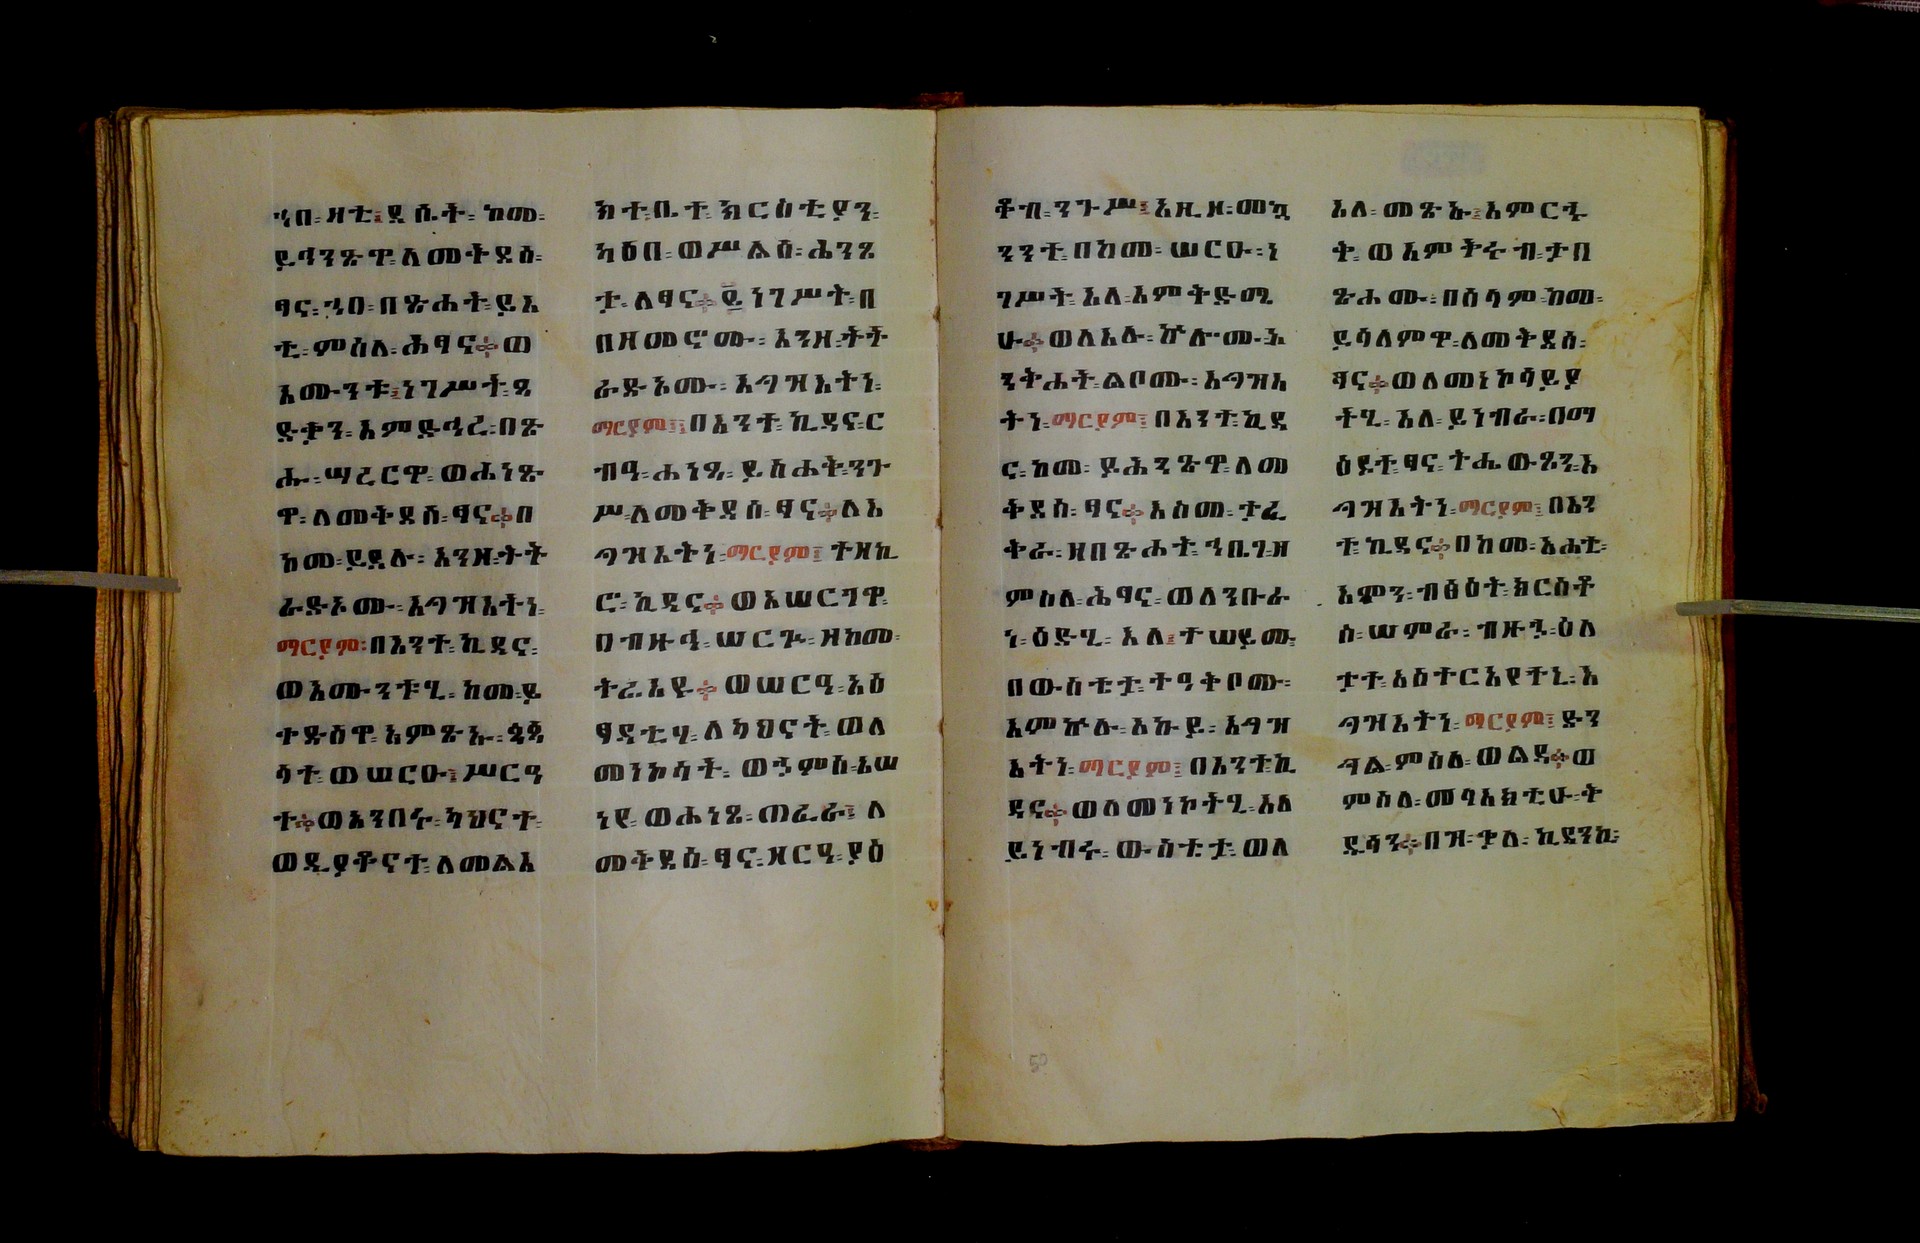 ኀበ፡ ዛቲ፤ ደሴት፡ ከመ፡
ይሕንጽዋ፡ ለመቅደስ፡
ፃና፡ ኀዐ፡ በጽሐት፡ ይእ
ቲ፡ ምስለ፡ ሕፃና፨ ወ
እሙንቱ፤ ነገሥት፡ ጻ
ድቃን፡ እምድኅረ፡ በጽ
ሑ፡ ሣረርዋ፡ ወሐነጽ
ዋ፡ ለመቅደሰ፡ ፃና፨ በ
ከመ፡ ይደሉ፡ እንዘ፡ ትት
ራድኦሙ፡ እግዝእትነ፡
ማርያም፡ በእንተ፡ ኪዳና፡
ወእሙንቱሂ፡ ከመ፡ ይ
ተድስዋ፡ እምጽኡ፡ ጳጳ
ሳተ፡ ወሠርዑ፤ ሥርዓ
ተ፨ ወአንበሩ፡ ካህናተ፡
ወዲያቆናተ፡ ለመልእ
ክተ፡ ቤተ፡ ክርስቲያን፡
ካዕበ፡ ወሥልስ፡ ሕንጻ
ቷ፡ ለፃና፨ ፪ ነገሥት፡ በ
በዘመኖሙ፡ እንዘ፡ ትት
ራድኦሙ፡ እግዝእትነ፡
ማርያም፤ በእንተ፡ ኪዳና፡ ር
ብዓ፡ ሐነጻ፡ ይስሐቅ፡ ንጉ
ሥ፡ ለመቅደሰ፡ ፃና፨ ለእ
ግዝእትነ፡ ማርያም፤ ተዘኪ
ሮ፡ ኪዳና፨ ወአሠርገዋ፡
በብዙኅ፡ ሠርጉ፡ ዘከመ፡
ተሬእዩ፨ ወሠርዓ፡ አዕ
ፃዳቲሃ፡ ለካህናት፡ ወለ
መነኮሳት፡ ወኃምስ፡ አሠ
ነየ፡ ወሐነጸ፡ ጠፈራ፤ ለ
መቅደሰ፡ ፃና፡ ዘርዓ፡ ያዕ
ቆብ፡ ንጉሥ፤ አዚዞ፡ መኳ
ንንተ፡ በከመ፡ ሠርዑ፡ ነ
ገሥት፡ እለ፡ እምቅድሜ
ሁ፨ ወለእሉ፡ ኵሎሙ፡ ኦ
ንትሐት፡ ልቦሙ፡ እግዝእ
ትነ፡ ማርያም፤ በእንተ፡ ኪዳ
ና፡ ከመ፡ ይሕንጽዋ፡ ለመ
ቅደሰ፡ ፃና፨ እስመ፡ ታፈ
ቅራ፡ ዘበጽሐት፡ ኀቤገ፡ ዘ
ምስለ፡ ሕፃና፡ ወለንቡራ
ነ፡ ዕድሂ፡ እለ፤ ተሠይሙ፡
በውስቴታ፡ ተዓቅቦሙ፡
እምኵሉ፡ እኩይ፡ እግዝ
እትነ፡ ማርያም፤ በእንተ፡ ኪ
ዳና፨ ወለመነኮትሂ፡ እለ
ይነብሩ፡ ውስቴታ፡ ወለ
እለ፡ መጽኡ፤ እምርኁ
ቅ፡ ወእምቅሩብ፡ ታበ
ጽሐሙ፡ በሰላም፡ ከመ፡
ይሳለምዋ፡ ለመቅደሰ፡
ፃና፨ ወለመነኮሳይያ
ቲሂ፡ እለ፡ ይነብራ፡ በማ
ዕዶተ፡ ፃና፡ ተሐውጾን፡ እ
ግዝእትነ፡ ማርያም፤ በእን
ተ፡ ኪዳና፨ በከመ፡ አሐቲ፡
እምን፡ ብፅዕት፡ ክርስቶ
ስ፡ ሠምራ፡ ብዙኃ፡ ዕለ
ታተ፡ አስተርአየተኒ፡ እ
ግዝእትነ፡ ማርያም፤ ድን
ግል፡ ምስለ፡ ወልዳ፨ ወ
ምስለ፡ መላእክቲሁ፡ ቅ
ዱሳን፨ በዝ፡ ቃለ፡ ኪዳንኪ፡